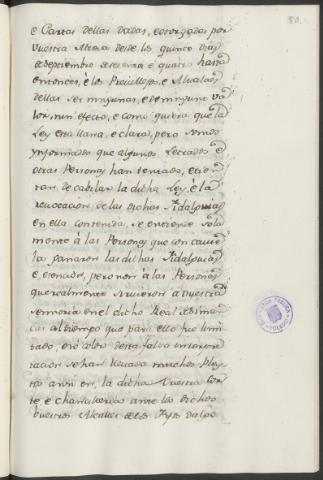 80.
e Cartas dellas dadas, e otorgadas por
Vuestra Alteza desde los quince dias
de Septiembre de sesenta e quatro hasta
entonces, è los Previllejos, e Alvalaes
dellas ser ningunas, e de ningund va
lor, nin efecto, e como quiera que la
Ley es llana, e clara, pero somos
ynformados que algunos Letrados e
otras Personas han tentado, e tien
tan de cabilar la dicha Ley, è la
revocacion de las dichas Fidalguias
en ella contenida, se entiende sola
mente à las Personas que con caute
la ganaron las dichas Fidalguias
e, esenciones, pero non à las Personas
que realmente sirvieron a Vuestra
Señoria en el dicho Real de Siman
cas al tiempo que para ello fue limi
tado, e so color desta falsa interpre
tacion se han llevado muchos Pley
tos ansi en la dicha Vuestra Cor
te e Chancilleria ante los dichos
Vuestros Alcaldes de los Fijos dalgo